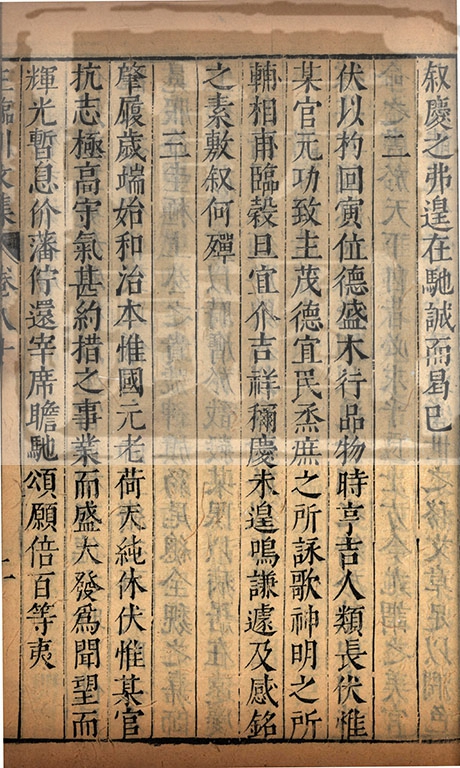 叙慶之弗遑在馳誠而曷已
二
伏以杓回寅位德盛木行品物時亨吉人類長伏惟
某官元功致主茂德宜民烝庶之所詠歌神明之所
輔相甫臨穀旦宜介吉祥稱慶未遑鳴謙遽及感銘
之素敷叙何殫
三
肇履歲端始和治本惟國元老荷天純休伏惟某官
抗志極高守氣甚約措之事業而盛大發爲聞望而
輝光暫息价藩佇還宰席瞻馳頌願倍百等夷
王臨川文集 卷八十